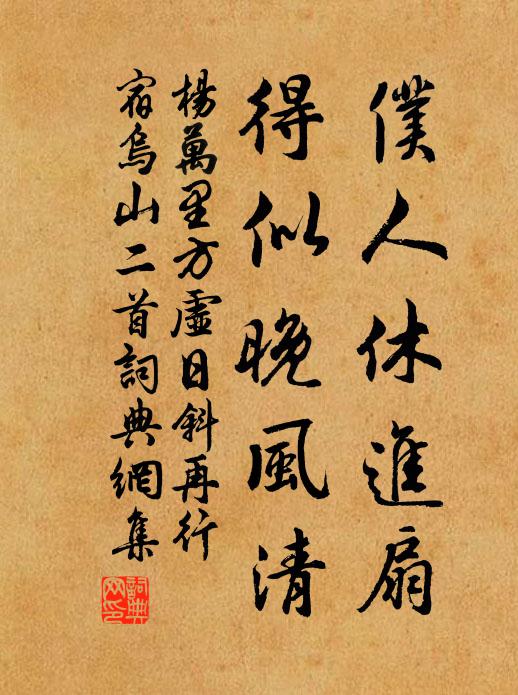 僕人休進扇
得似晚風清
楊萬里方虛日斜再行
宿烏山二首詞典網集
詞典網印